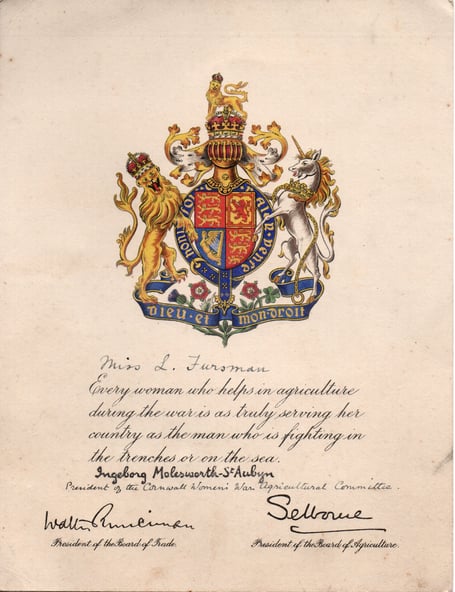 Honi soit
Mal y Pense
Dieu·et mon·droit
Miss L. Fursman
Every woman who helps in agriculture
during the war is as truly serving her
country as the man who is fighting in
the trenches or on the sea.
Ingeborg Molesworth-St Aubyn
President of the Cornwall Women's War Agricultural Committee.
Walter Runciman
Selborne
President of the Board of Trade.
President of the Board of Agriculture.